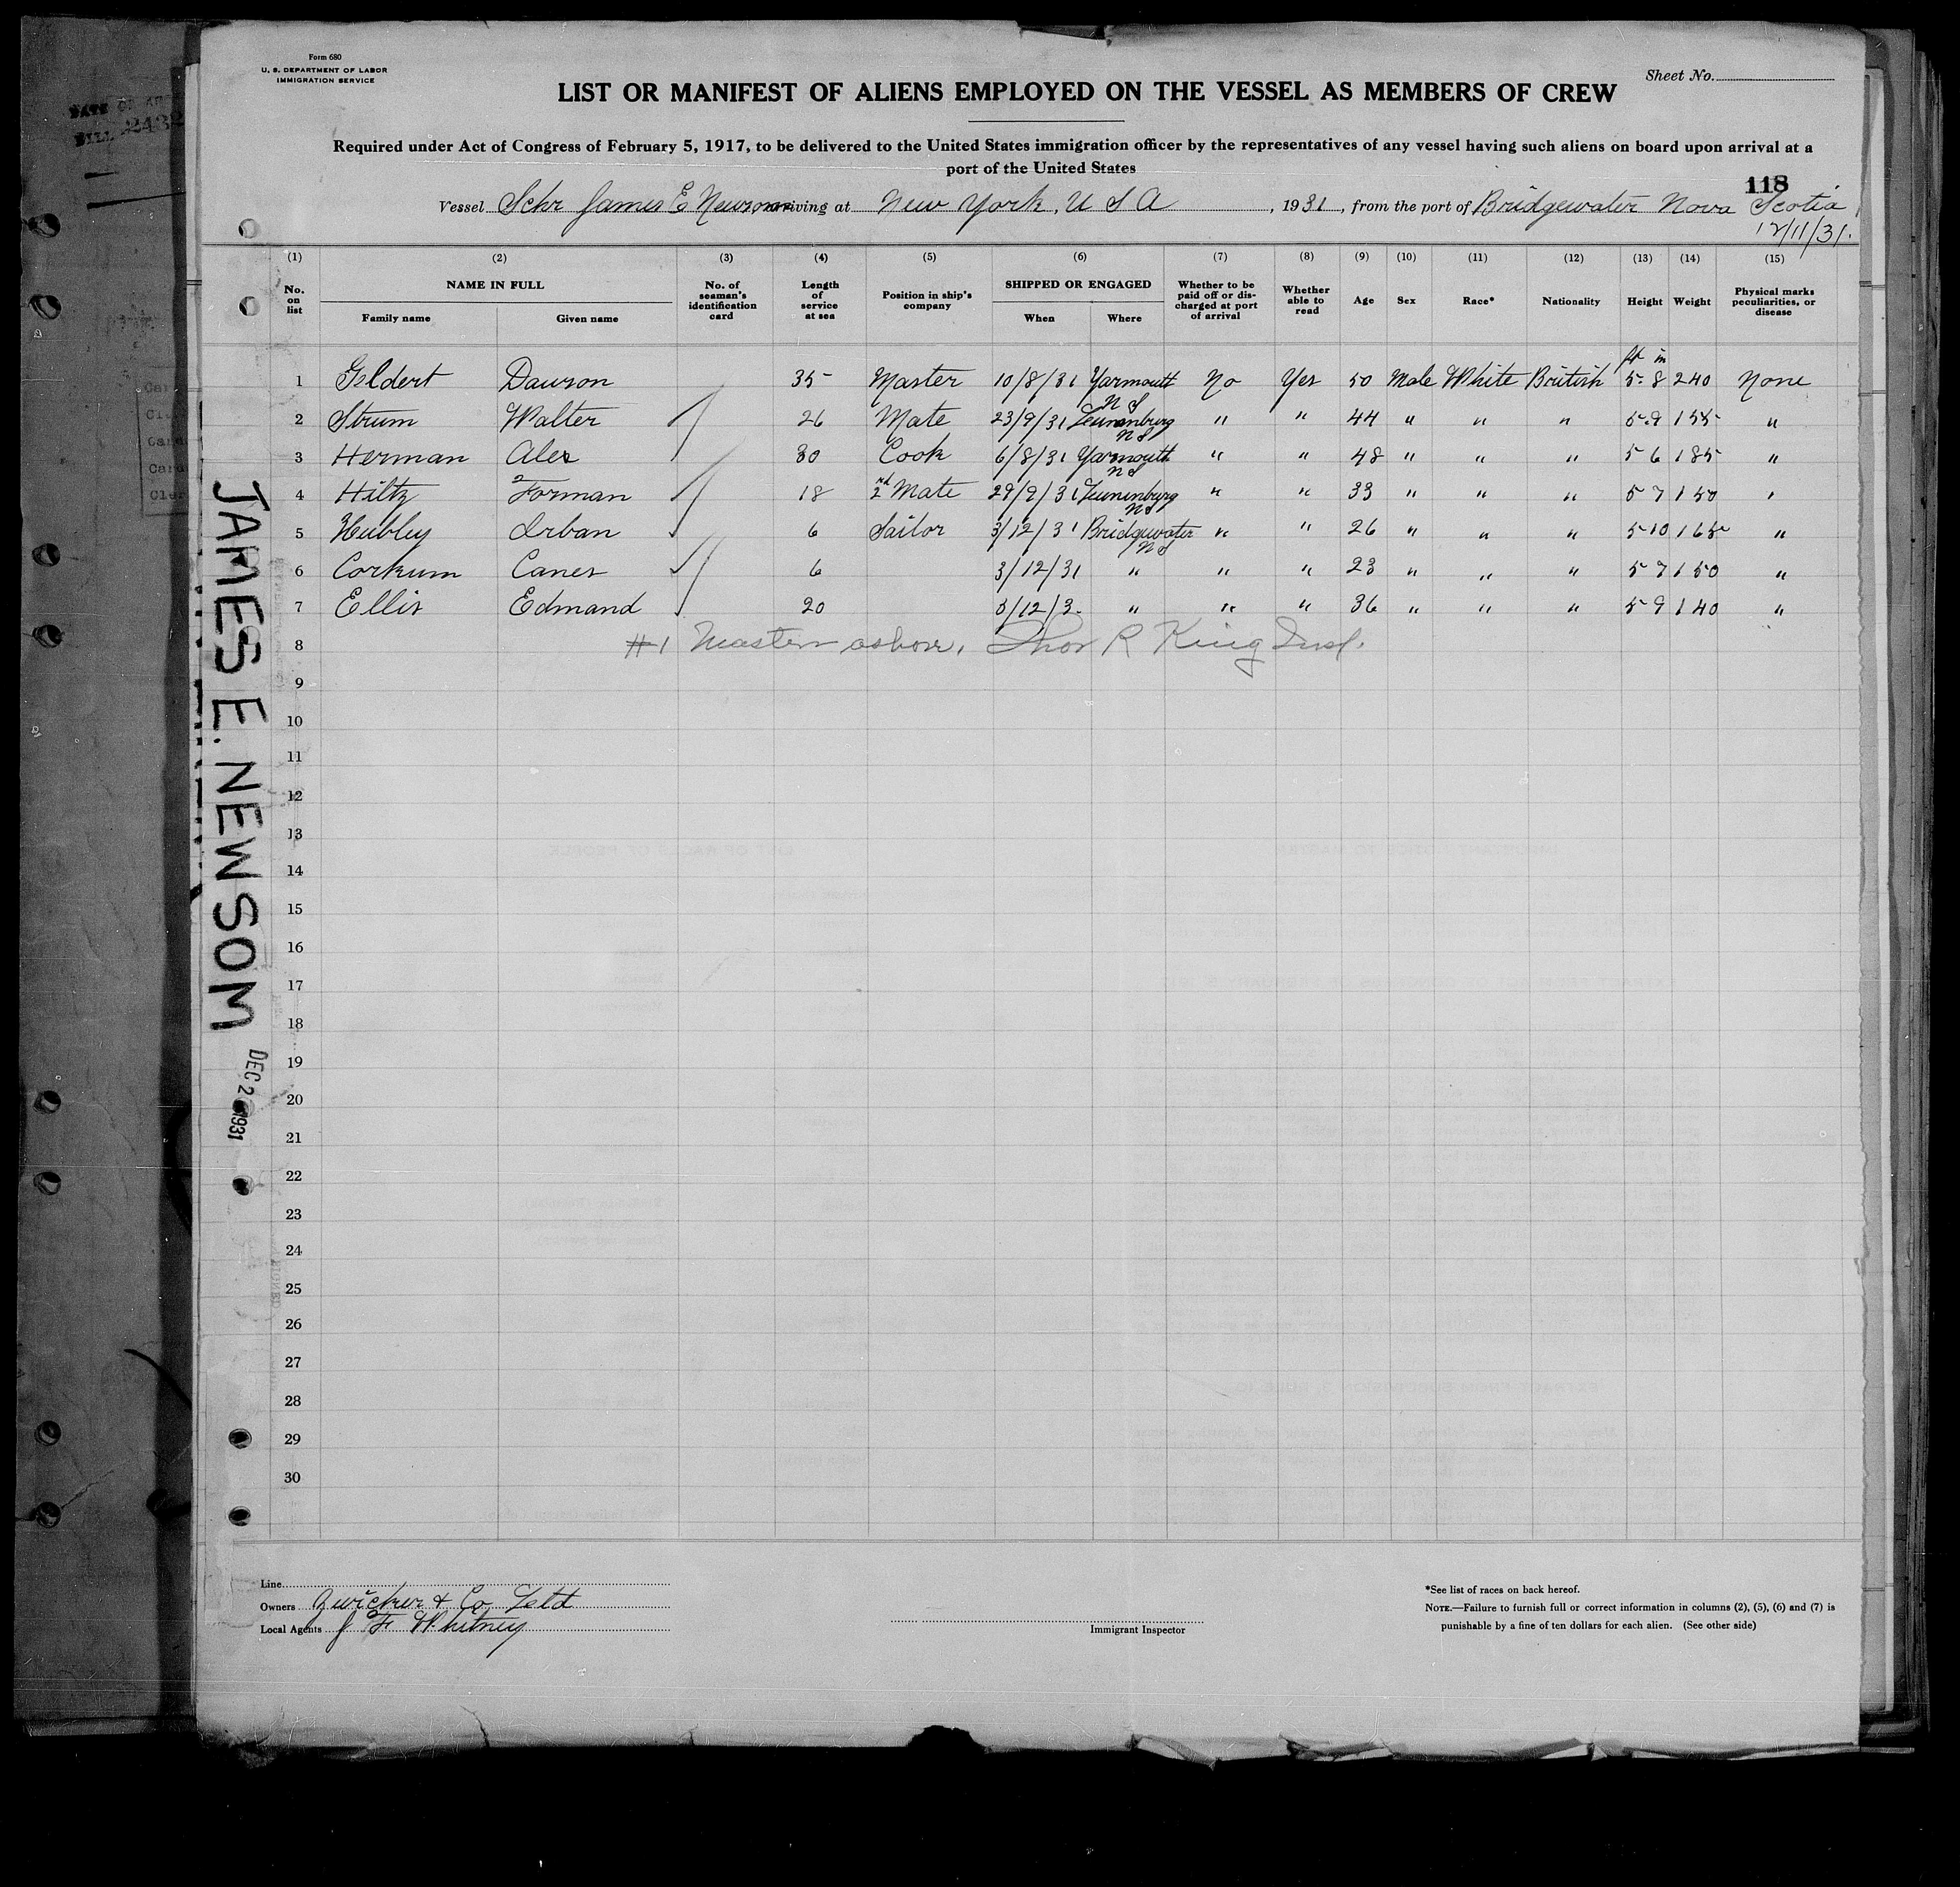 Form 680
U. S. DEPARTMENT OF LABOR
IMMIGRATION SERVICE
Sheet No.
LIST OR MANIFEST OF ALIENS EMPLOYED ON THE VESSEL AS MEMBERS OF CREW
Required under Act of Congress of February 5, 1917, to be delivered to the United States immigration officer by the representatives of any vessel having such aliens on board upon arrival at a
port of the United States
118
Vessel Schr James E Newsom arriving at New York, U S A, 1931, from the port of Bridgewater Nova Scotia
12/11/31.
(1) (2) (3) (4) (5) (6) (7) (8) (9) (10) (11) (12) (13) (14) (15)
No. on list NAME IN FULL Family name Given name No. of seaman's identification card Length of service at sea Position in ship's company SHIPPED OR ENGAGED When Where Whether to be paid off or discharged at port of arrival Whether able to read Age Sex Race* Nationality Height Weight Physical marks peculiarities, or disease
ft in
1 Geldert Dawson 35 Master 10/8/31 Yarmouth N S No Yes 50 Male White British 5-8 240 None
2 Strum Walter 26 Mate 23/9/31 Lunenburg N S " " 44 " " " 5-9 155 "
3 Herman Alex 30 Cook 6/8/31 Yarmouth N S " " 48 " " " 5 6 185 "
4 Hiltz Forman 18 2nd Mate 29/9/31 Lunenburg N S " " 33 " " " 5 7 150 "
5 Hubley Urban 6 Sailor 3/12/31 Bridgewater N S " " 26 " " " 5-10 165 "
6 Corkum 6 3/12/31 " " " 23 " " " 5 7 150 "
7 Ellis Edmand 20 3/12/3. " " " 36 " " " 5 9 140 "
8 #1 Master ashore. Thos R King Insp.
9
10
11
12
13
14
15
16
17
18
19
20
21
22
23
24
25
26
27
28
29
30
JAMES E. NEWSOM
DEC 2 1931
Line
Owners Zwicker & Co Ltd
Local Agents J F Whitney
Immigrant Inspector
*See list of races on back hereof.
NOTE.—Failure to furnish full or correct information in columns (2), (5), (6) and (7) is
punishable by a fine of ten dollars for each alien. (See other side)